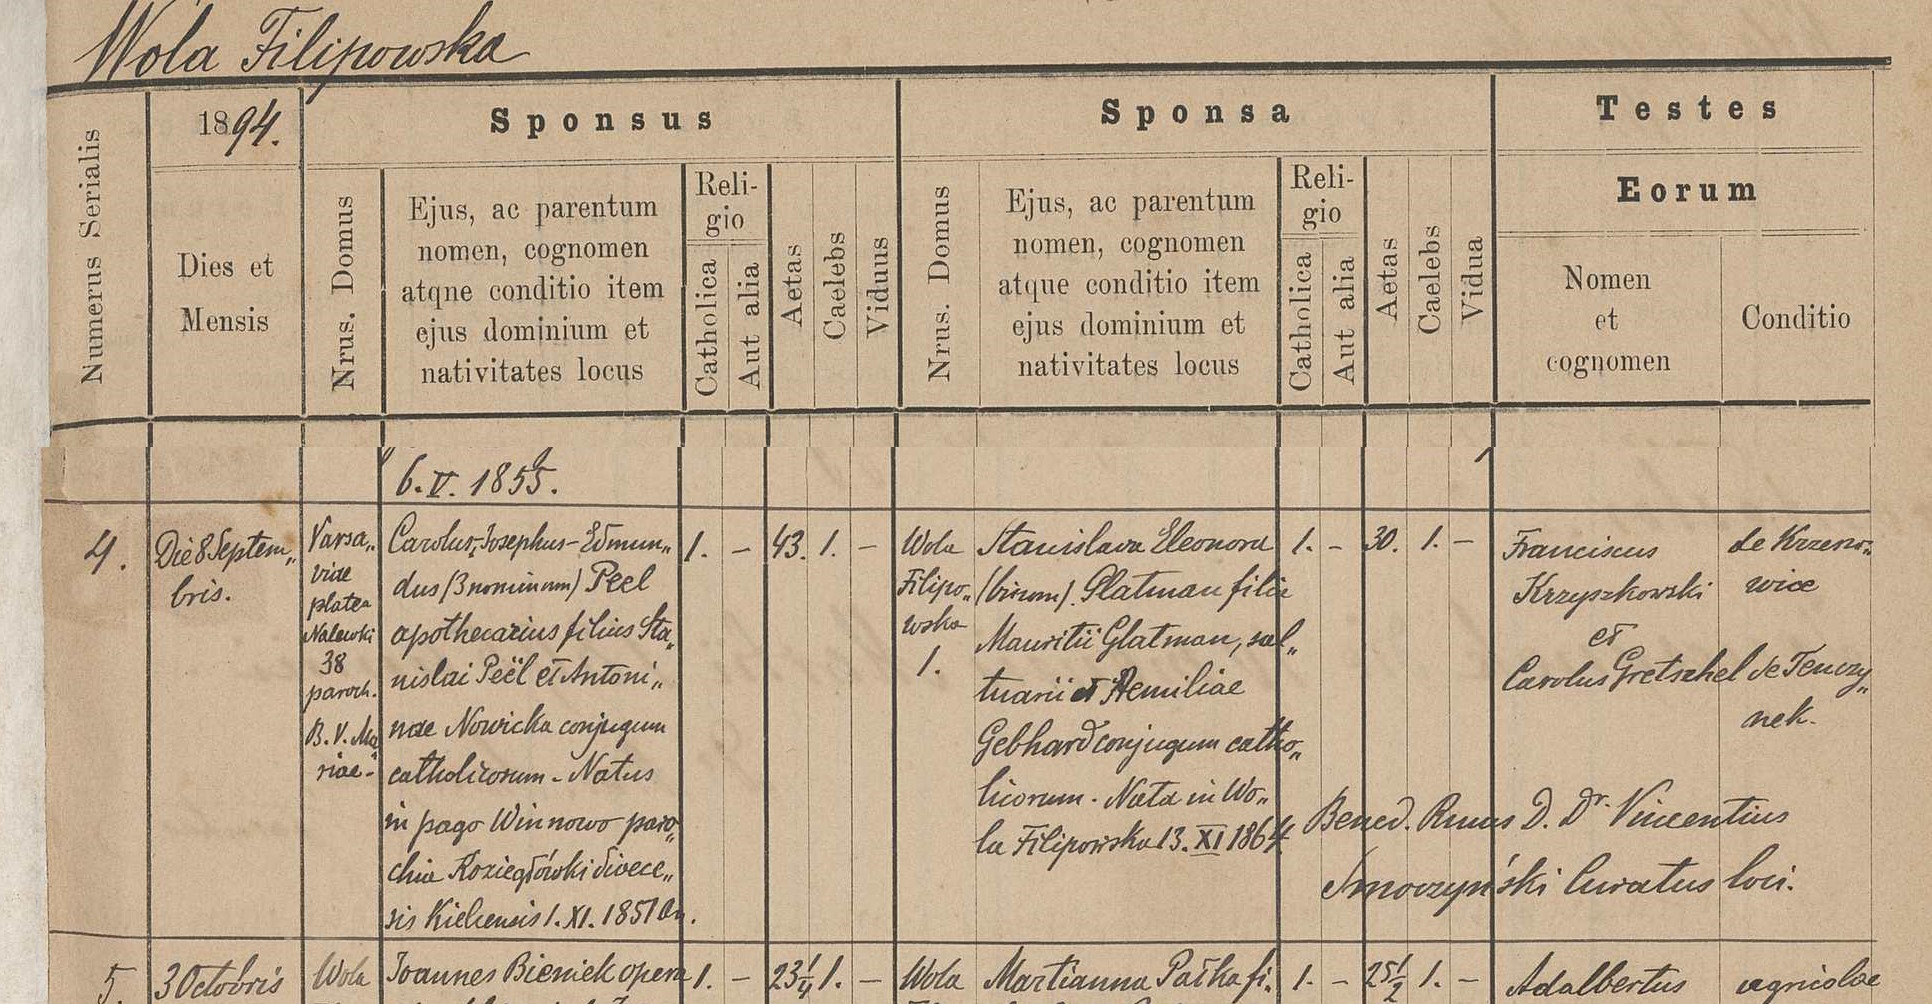 Wola Filipowska
Numerus Serialis
1894.
Dies et
Mensis
Sponsus
Nrus. Domus
Ejus, ac parentum
nomen, cognomen
atqne conditio item
ejus dominium et
nativitates locus
Reli-
gio
Catholica
Aut alia
Aetas
Caelebs
Viduus
Sponsa
Nrus. Domus
Ejus, ac parentum
nomen, cognomen
atque conditio item
ejus dominium et
nativitates locus
Reli-
gio
Catholica
Aut alia
Aetas
Caelebs
Vidua
Testes
Eorum
Nomen
et
cognomen
Conditio
6. V. 1855.
4.
Die 8 Septem„
bris.
Varsa„
viae
platea
Nalewki
38
paroch.
B. V. Ma„
riae-
Carolus, Josephus-Edmun„
dus (3 nominum) Peel
apothecarius filius Sta„
nislai Peël et Antoni„
nae Nowicka conjugum
catholicorum - Natus
in pago Winnowo paro„
chia Koziegłówki dioece„
sis Kielcensis 1. XI. 1851 an.
1. - 43. 1. -
Wola
Filipo„
wska
1.
Stanislava Eleonora
(binom). Glatman filia
Mauritii Glatman, sal„
tuarii et Aemiliae
Gebhard conjugum catho„
licorum. Nata in Wo„
la Filipowska 13. XI 1864.
1. - 30. 1. -
Franciscus
Krzyszkowski
et
Carolus Gretschel
de Krzeszo„
wice
de Tenczy„
nek.
Bened. Rmus D. Dr. Vincentius
Smoczyński Curatus loci.
5.
3 Octobris
Wola
Joannes Bieniek opera
1. - 23 1/4 1. -
Wola
Martianna Pałka fi.
1. - 25 1/2 1. -
Adalbertus
agricolae